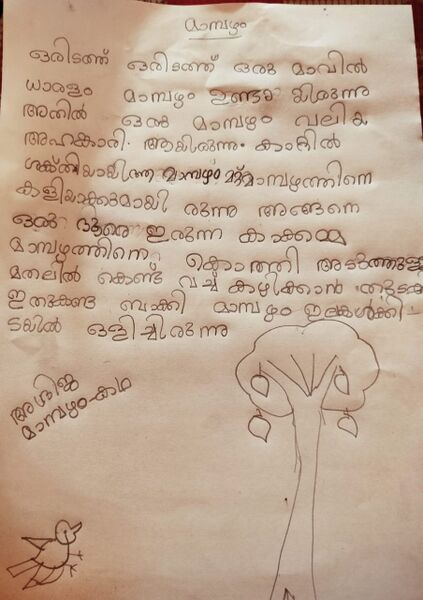 മാമ്പഴം
ഒരിടത്ത് ഒരിടത്ത് ഒരു മാവിൽ
ധാരളം മാമ്പഴം ഉണ്ടാ യിരുന്നു
അതിൽ ഒരു മാമ്പഴം വലിയ
അഹങ്കാരി ആയിരുന്നു കാറ്റിൽ
ശക്തിയായിത്ത മാമ്പഴം മറ്റ്മാമ്പഴത്തിനെ
കളിയാക്കുമായി രുന്നു അങ്ങനെ
ഒരു ദൂരെ ഇരുന്ന കാക്കമ്മ
മാമ്പഴത്തിനെ കൊത്തി അടുത്തുള്ള
മതലിൽ കൊണ്ട് വച്ച് കഴിക്കാൻ തുടങ്ങി
ഇതുകണ്ട ബാക്കി മാമ്പഴം ഇലകൾക്കി-
ടയിൽ ഒളിച്ചിരുന്നു
അശ്വിജ
മാമ്പഴം-കഥ